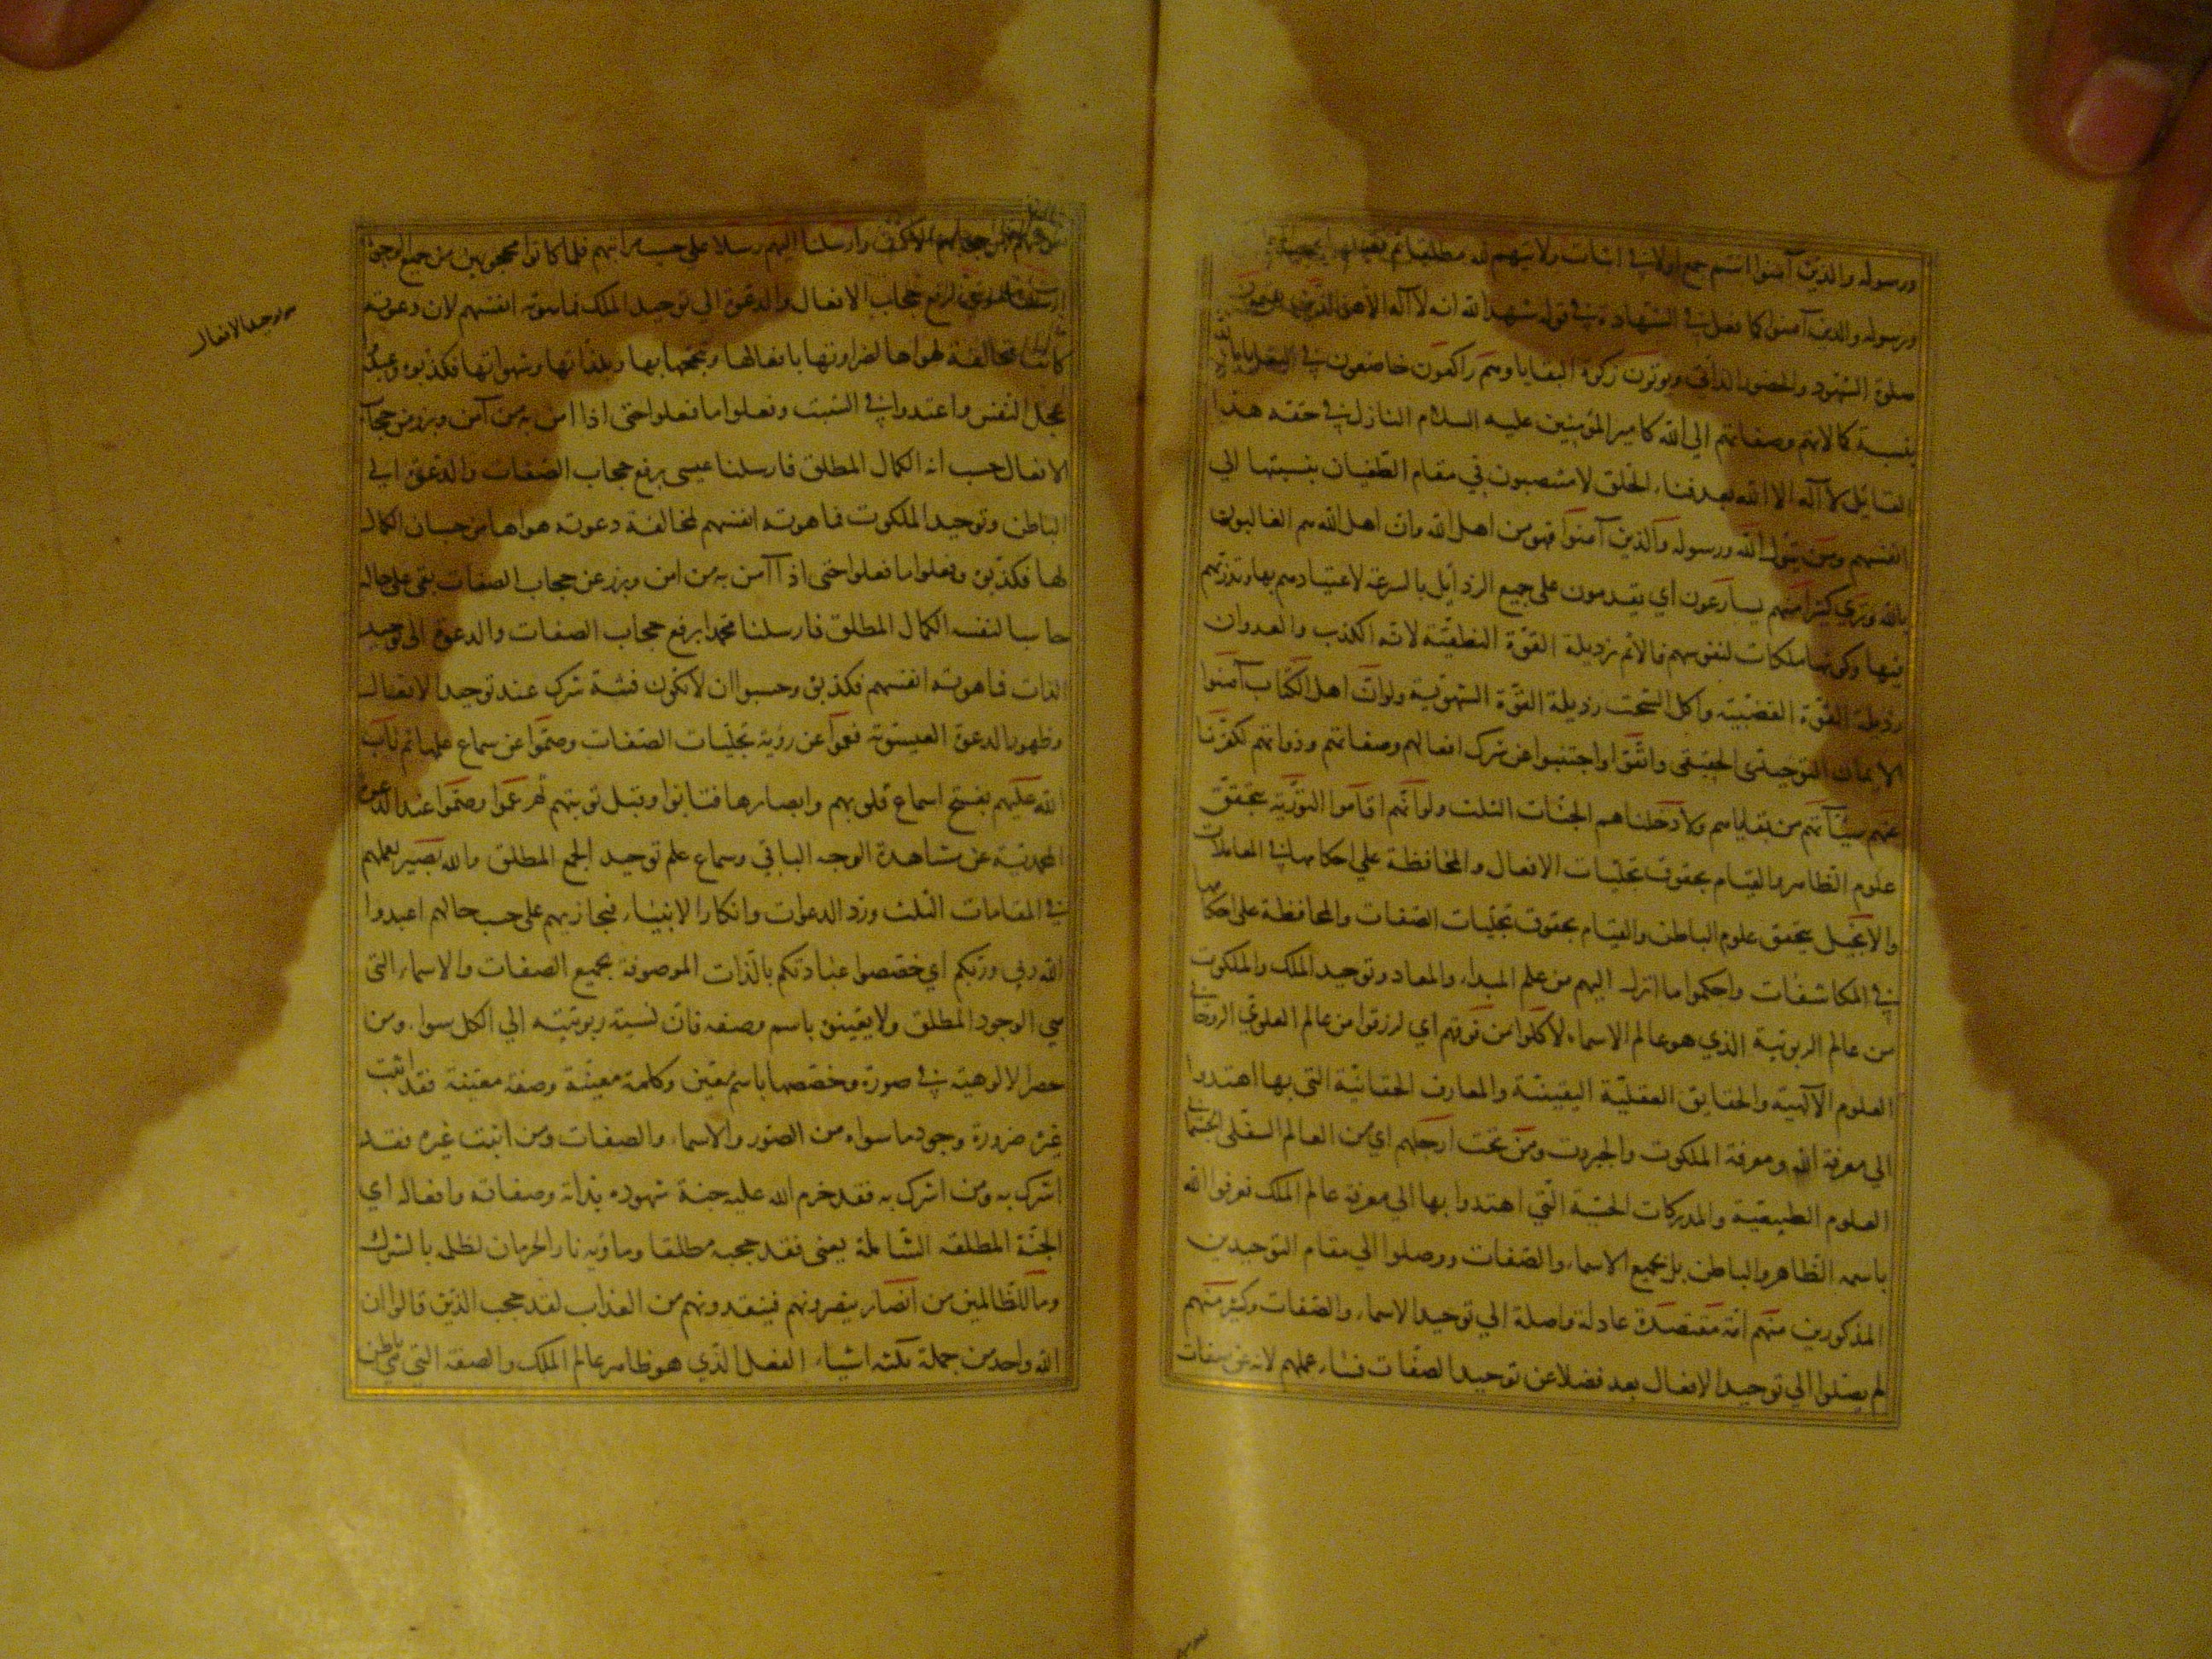 ورسوله والذين آمنوا انتم جمع اولا في اثبات ولايتهم لله مطلقا ثم
ورسوله والذين آمنوا كما فعل في الشهادة في قوله شهد الله انه لا اله الا هو الذين يقيمون
صلوة الشهود والحضور الذاتي ويوتون زكوة البقايا وهم راكعون خاضعون في البقاء بالله
بنسبة كمالاتهم وصفاتهم الى الله كامير المؤمنين عليه السلام النازل في حقه هذا
القايل لا آله الا الله بعد فناء الخلق لا منتصبون في مقام الطغيان بنسبتها الي
انفسهم ومن يتول الله ورسوله والذين آمنوا فهو من اهل الله وان اهل الله هم الغالبون
بالله وتري كثيرا منهم يسارعون اي يقدمون على جميع الرذايل بالسرعة لاعتيادهم بها وتدربهم
فيها وكونها ملكات لنفوسهم فالاثم رذيلة القوة النطقية لانه الكذب والعدوان
رذيلة القوة الغضبية واكل السحت رذيلة القوة الشهوية ولو ان اهل الكتاب آمنوا
الايمان التوحيدي الحقيقي واتقوا واجتنبوا عن شرك افعالهم وصفاتهم وذواتهم لكفرنا
عنهم سيئآتهم من بقاياهم ولادخلناهم الجنات الثلث ولو انهم اقاموا التورية بتحقق
علوم الظاهر والقيام بحقوق تجليات الافعال والمحافظة علي احكامها في المعاملات
والانجيل بتحقق علوم الباطن والقيام بحقوق تجليات الصفات والمحافظة على احكامها
في المكاشفات واحكموا ما انزل اليهم من علم المبداء والمعاد وتوحيد الملك والملكوت
من عالم الربوبية الذي هو عالم الاسماء لاكلوا من فوقهم اي لرزقوا من عالم العلوي الروحاني
العلوم الآلهية والحقايق العقلية اليقينية والمعارف الحقانية التي بها اهتدوا
الي معرفة الله ومعرفة الملكوت والجبروت ومن تحت ارجلهم اي من العالم السفلي الجسماني
العلوم الطبيعية والمدركات الحسية التي اهتدوا بها الي معرفة عالم الملك فعرفوا الله
باسمه الظاهر والباطن بل بجميع الاسماء والصفات ووصلوا الي مقام التوحيدين
المذكورين منهم امة مقتصدة عادلة واصلة الي توحيد الاسماء والصفات وكثير منهم
لم يصلوا الي توحيد الافعال بعد فضلا عن توحيد الصفات فساء عملهم لانه من صفات
وارسلنا اليهم رسلا على حسب مراتبهم فلما كانوا محجوبين من جميع الوجوه
ارسلنا موسى لرفع حجاب الافعال والدعوة الي توحيد الملك فما هوته انفسهم لان دعوته
كانت مخالفة لهواها لضراوتها بافعالها وتبجحها بها وبلذاتها وشهواتها فكذبوه وعبدوا
عجل النفس واعتدوا في السبت وفعلوا ما فعلوا حتى اذا امن به من آمن وبرز من حجاب
الافعال حسب انه الكمال المطلق فارسلنا عيسى برفع حجاب الصفات والدعوة الي
الباطن وتوحيد الملكوت فما هوته انفسهم لمخالفة دعوته هواها من حسبان الكمال
لها فكذبوه وفعلوا ما فعلوا حتى اذا آمن به من امن وبرز عن حجاب الصفات بقي على حاله
حاسبا لنفسه الكمال المطلق فارسلنا محمدا برفع حجاب الصفات والدعوة الى توحيد
الذات فما هوته انفسهم فكذبوه وحسبوا ان لا تكون فتنة شرك عند توحيد الافعال
وظهور الدعوة العيسوية فعموا عن رؤية تجليات الصفات وصموا عن سماع علمها ثم تاب
الله عليهم بفتح اسماع قلوبهم وابصارها فتابوا وقبل توبتهم ثم عموا وصموا عند الدعوة
المحمدية عن مشاهدة الوجه الباقي وسماع علم توحيد الجمع المطلق والله بصير بعملهم
في المقامات الثلث ورد الدعوات وانكار الانبياء فيجازيهم على حسب حالهم اعبدوا
الله ربي وربكم اي خصصوا عبادتكم بالذات الموصوفة بجميع الصفات والاسماء التي
هي الوجود المطلق ولا يتعين باسم وصفه فان نسبة ربوبيته الي الكل سواء ومن
حصر الالوهية في صورة وخصصها باسم معين وكلمة معينة وصفة معينة فقد اثبت
غيره ضرورة وجود ما سواه من الصور والاسماء والصفات ومن اثبت غيره فقد
اشرك به ومن اشرك به فقد حرم الله عليه جنة شهوده بذاته وصفاته وافعاله اي
الجنة المطلقة الشاملة يعنى فقد حجبه مطلقا وماويه نار الحرمان لظلمه بالشرك
وما للظالمين من انصار ينصرونهم فينقدونهم من العذاب لقد حجب الذين قالوا ان
الله واحد من جملة ثلثة اشياء الفعل الذي هو ظاهر عالم الملك والصفة التي هي باطن
توحيد الافعال